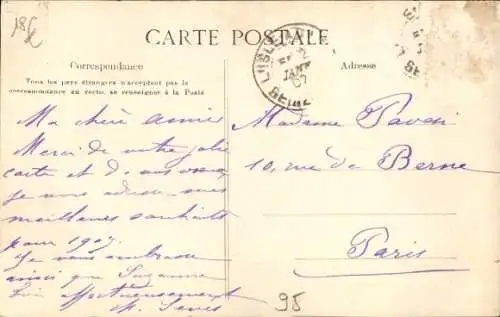 18c
CARTE POSTALE
Correspondance
Tous les pays étrangers n'acceptent pas la
correspondance au recto, se renseigner à la Poste
Ma chère amie
Merci de votre jolie
carte et d
je vous adresse mes
meilleurs souhaits
pour 1907.
Je vous embrasse
ainsi que Suzanne
bien affectueusement
JANV
07
SEINE
Adresse
Madame Pavesi
10, rue de Berne
Paris
98